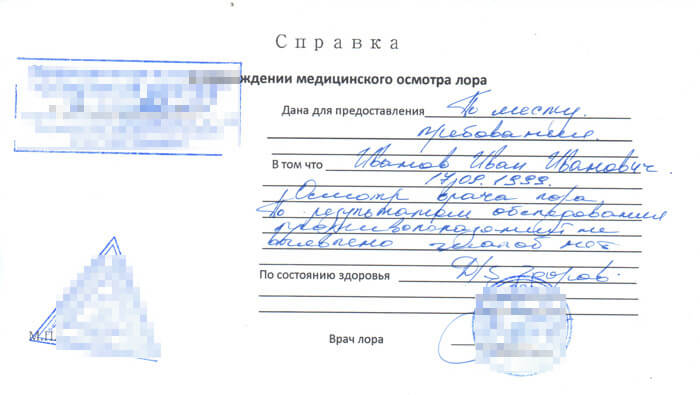 Справка
ждении медицинского осмотра лора
Дана для предоставления По месту
требования.
В том что Иванов Иван Иванович
17.09.1999.
Осмотр врача лора
По результатам обследования
противопоказаний не
выявлено жалоб нет
По состоянию здоровья D/S здоров.
М.П.
Врач лора